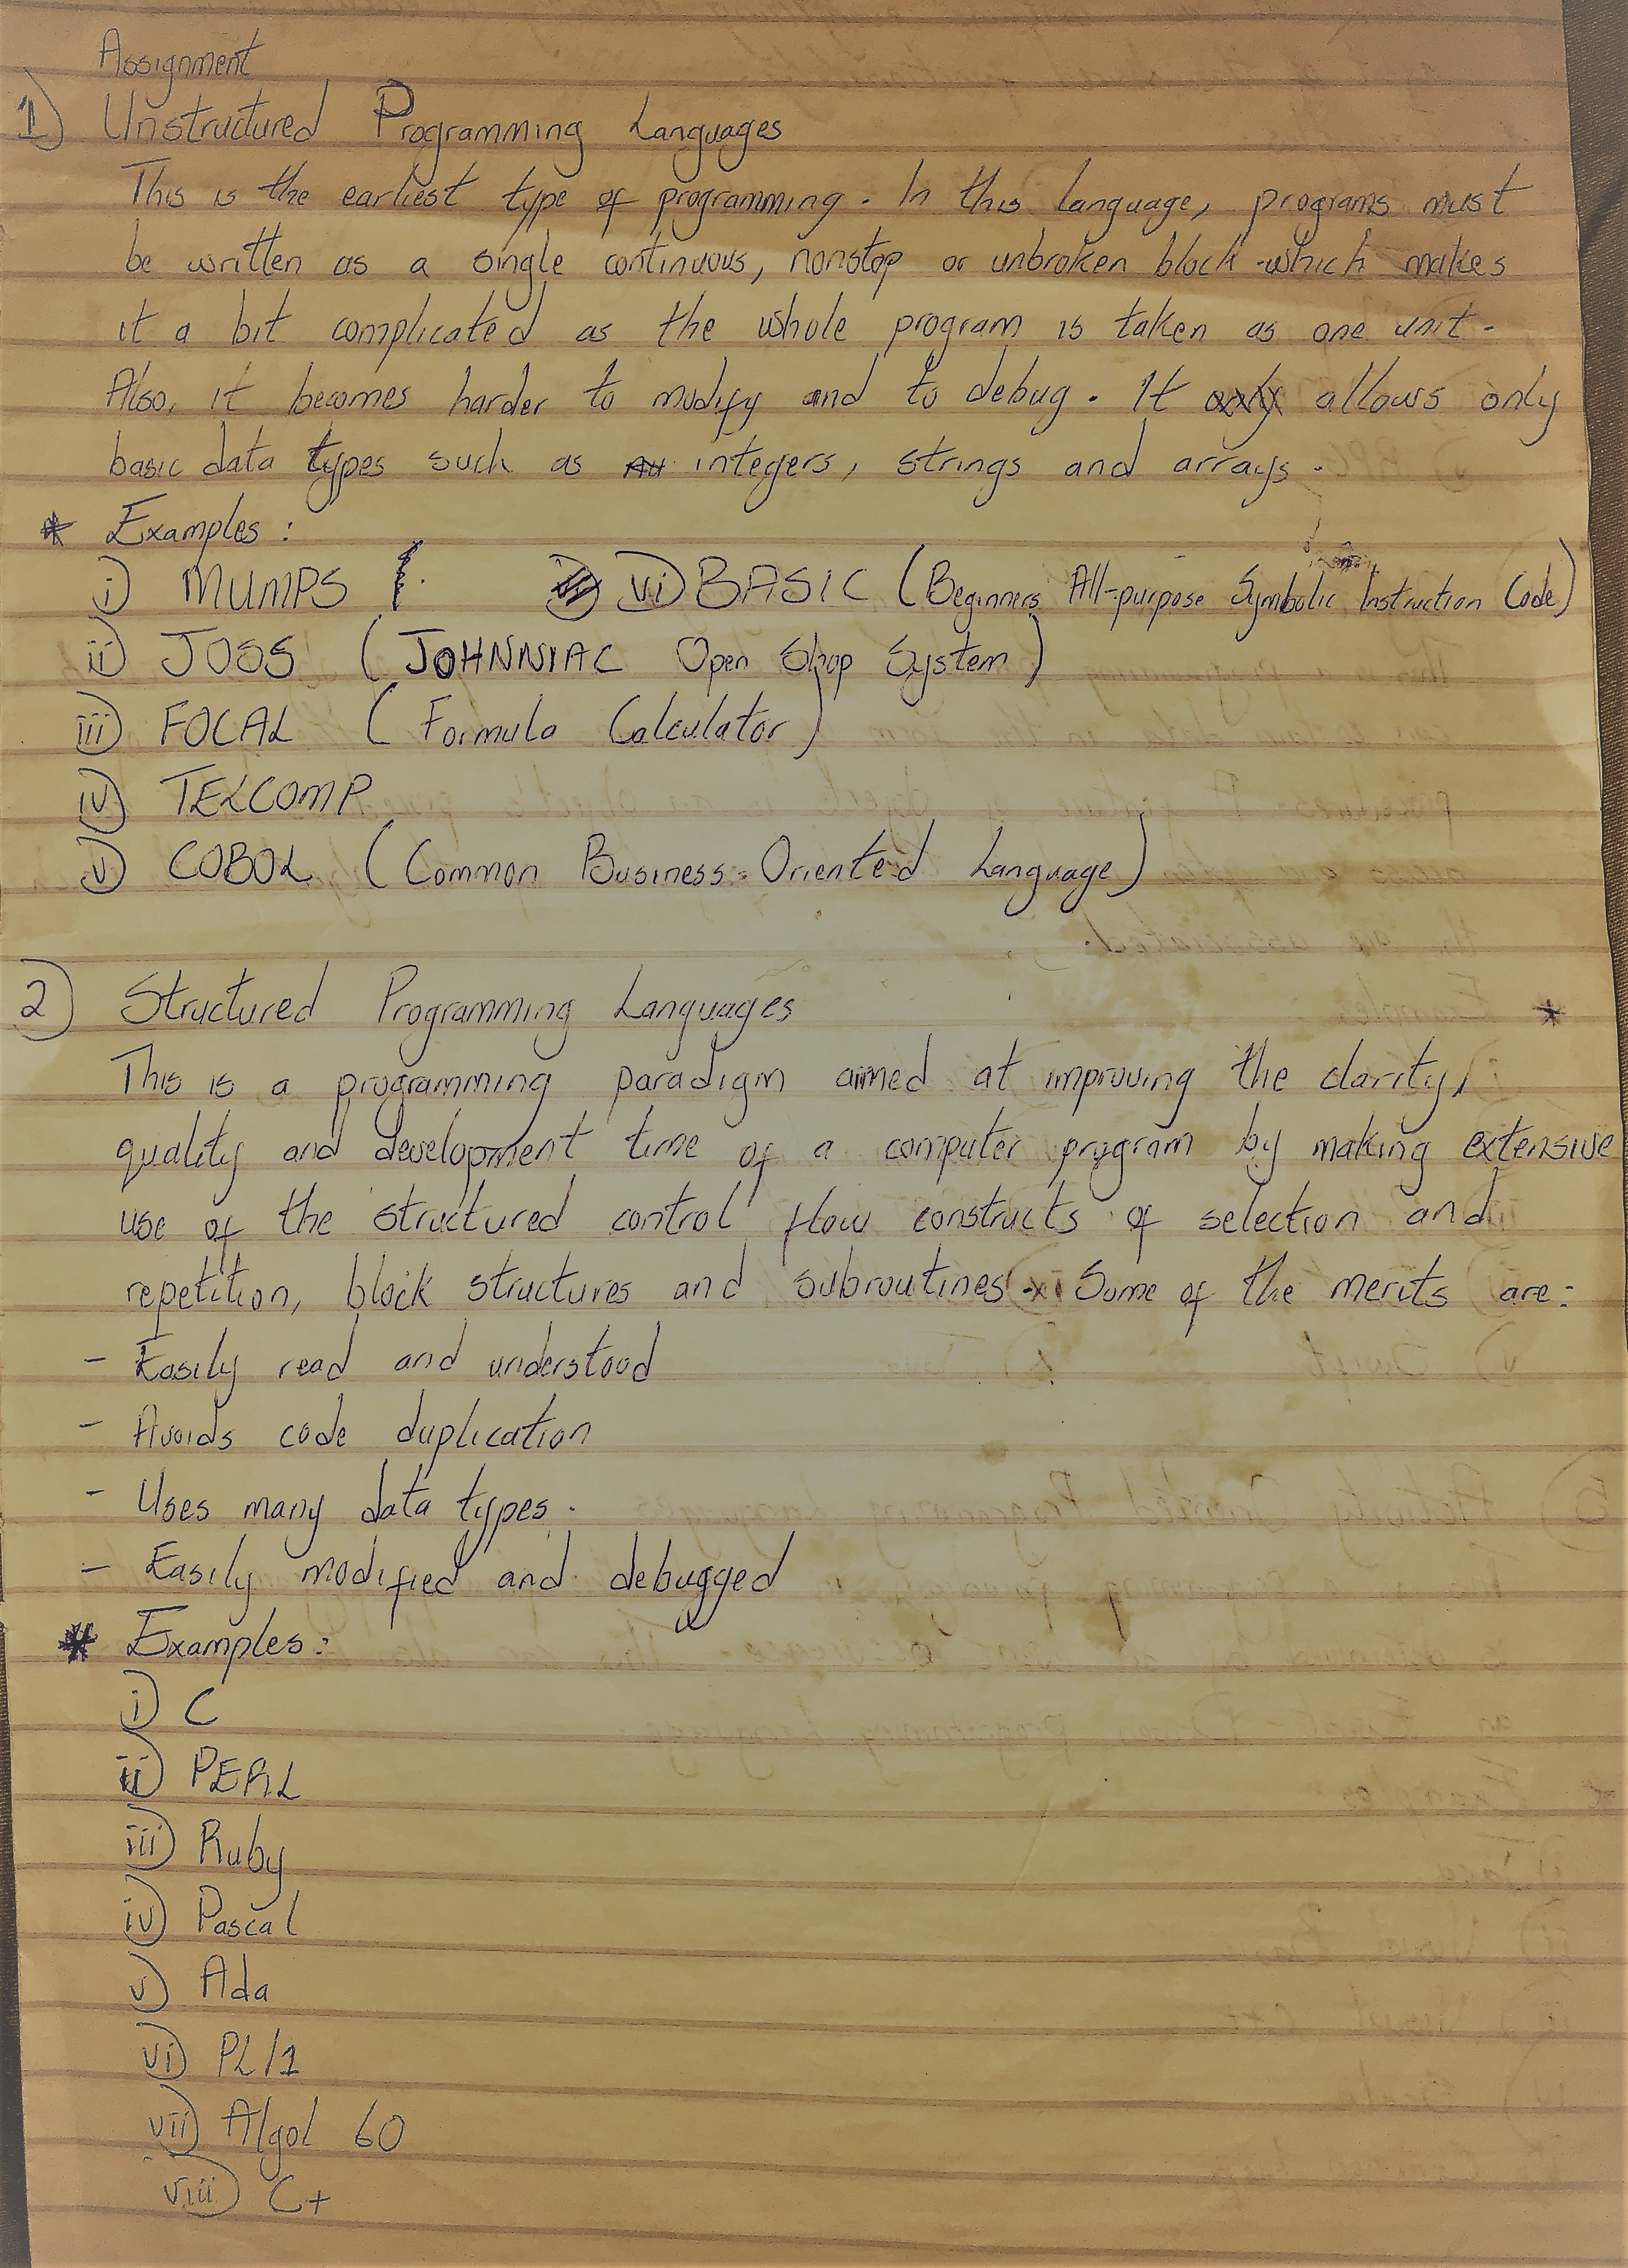 Assignment
1) Unstructured Programming Languages
This is the earliest type of programming. In this language, programs must
be written as a single continuous, nonstop or unbroken block which makes
it a bit complicated as the whole program is taken as one unit.
Also, it becomes harder to modify and to debug. It allows only
basic data types such as integers, strings and arrays.
* Examples:
i) MUMPS vi) BASIC (Beginners All-purpose Symbolic Instruction Code)
ii) JOSS (JOHNNIAC Open Shop System)
iii) FOCAL (Formula Calculator)
iv) TELCOMP
v) COBOL (Common Business-Oriented Language)
2) Structured Programming Languages
*
This is a programming paradigm aimed at improving the clarity,
quality and development time of a computer program by making extensive
use of the structured control flow constructs of selection and
repetition, block structures and subroutines. Some of the merits are:
- Easily read and understood
- Avoids code duplication
- Uses many data types.
- Easily modified and debugged
* Examples:
i) C
ii) PERL
iii) Ruby
iv) Pascal
v) Ada
vi) PL/1
vii) Algol 60
viii) C+